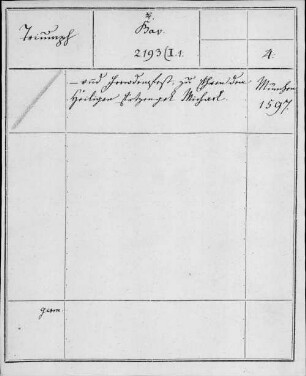 Triumph
4.
Bav.
2193 (I.1.
4.
– und Frewdenfest, zu Ehren dem
Heiligen Ertzengel Michael.
München
1597.
germ